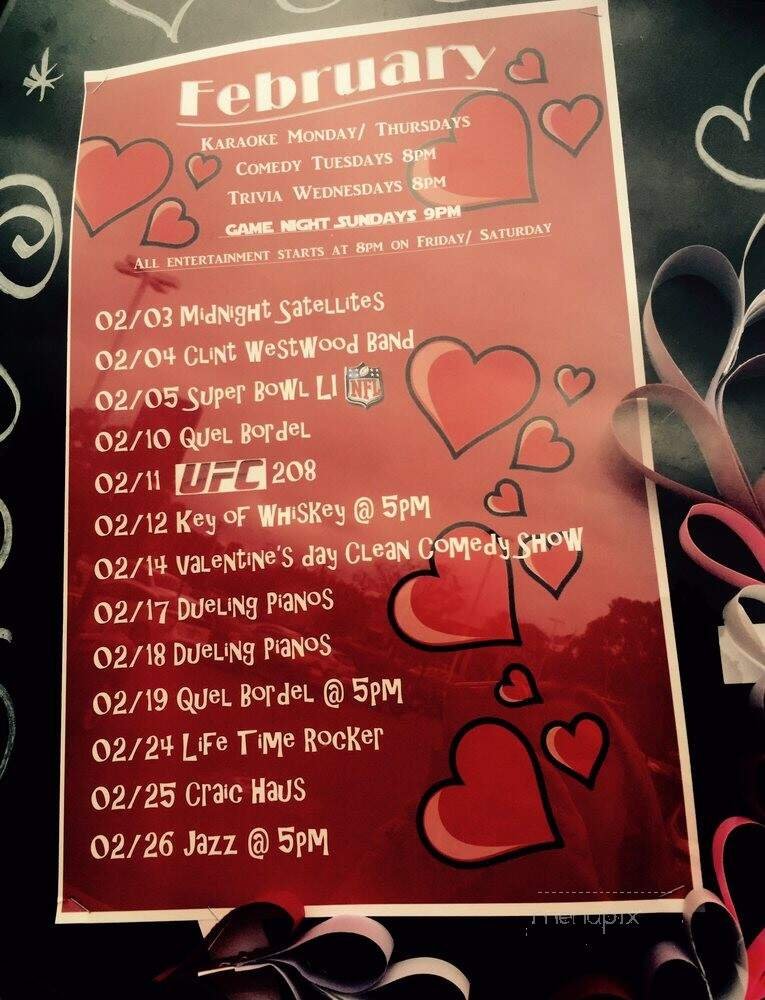 February
Karaoke Monday/ Thursdays
Comedy Tuesdays 8pm
Trivia Wednesdays 8pm
GAME NIGHT SUNDAYS 9PM
All entertainment starts at 8pm on Friday/ Saturday
02/03 Midnight Satellites
02/04 Clint Westwood Band
02/05 Super Bowl LI NFL
02/10 Quel Bordel
02/11 UFC 208
02/12 Key of Whiskey @ 5PM
02/14 Valentine's day Clean Comedy Show
02/17 Dueling Pianos
02/18 Dueling Pianos
02/19 Quel Bordel @ 5PM
02/24 Life Time Rocker
02/25 Craic Haus
02/26 Jazz @ 5PM
menupix